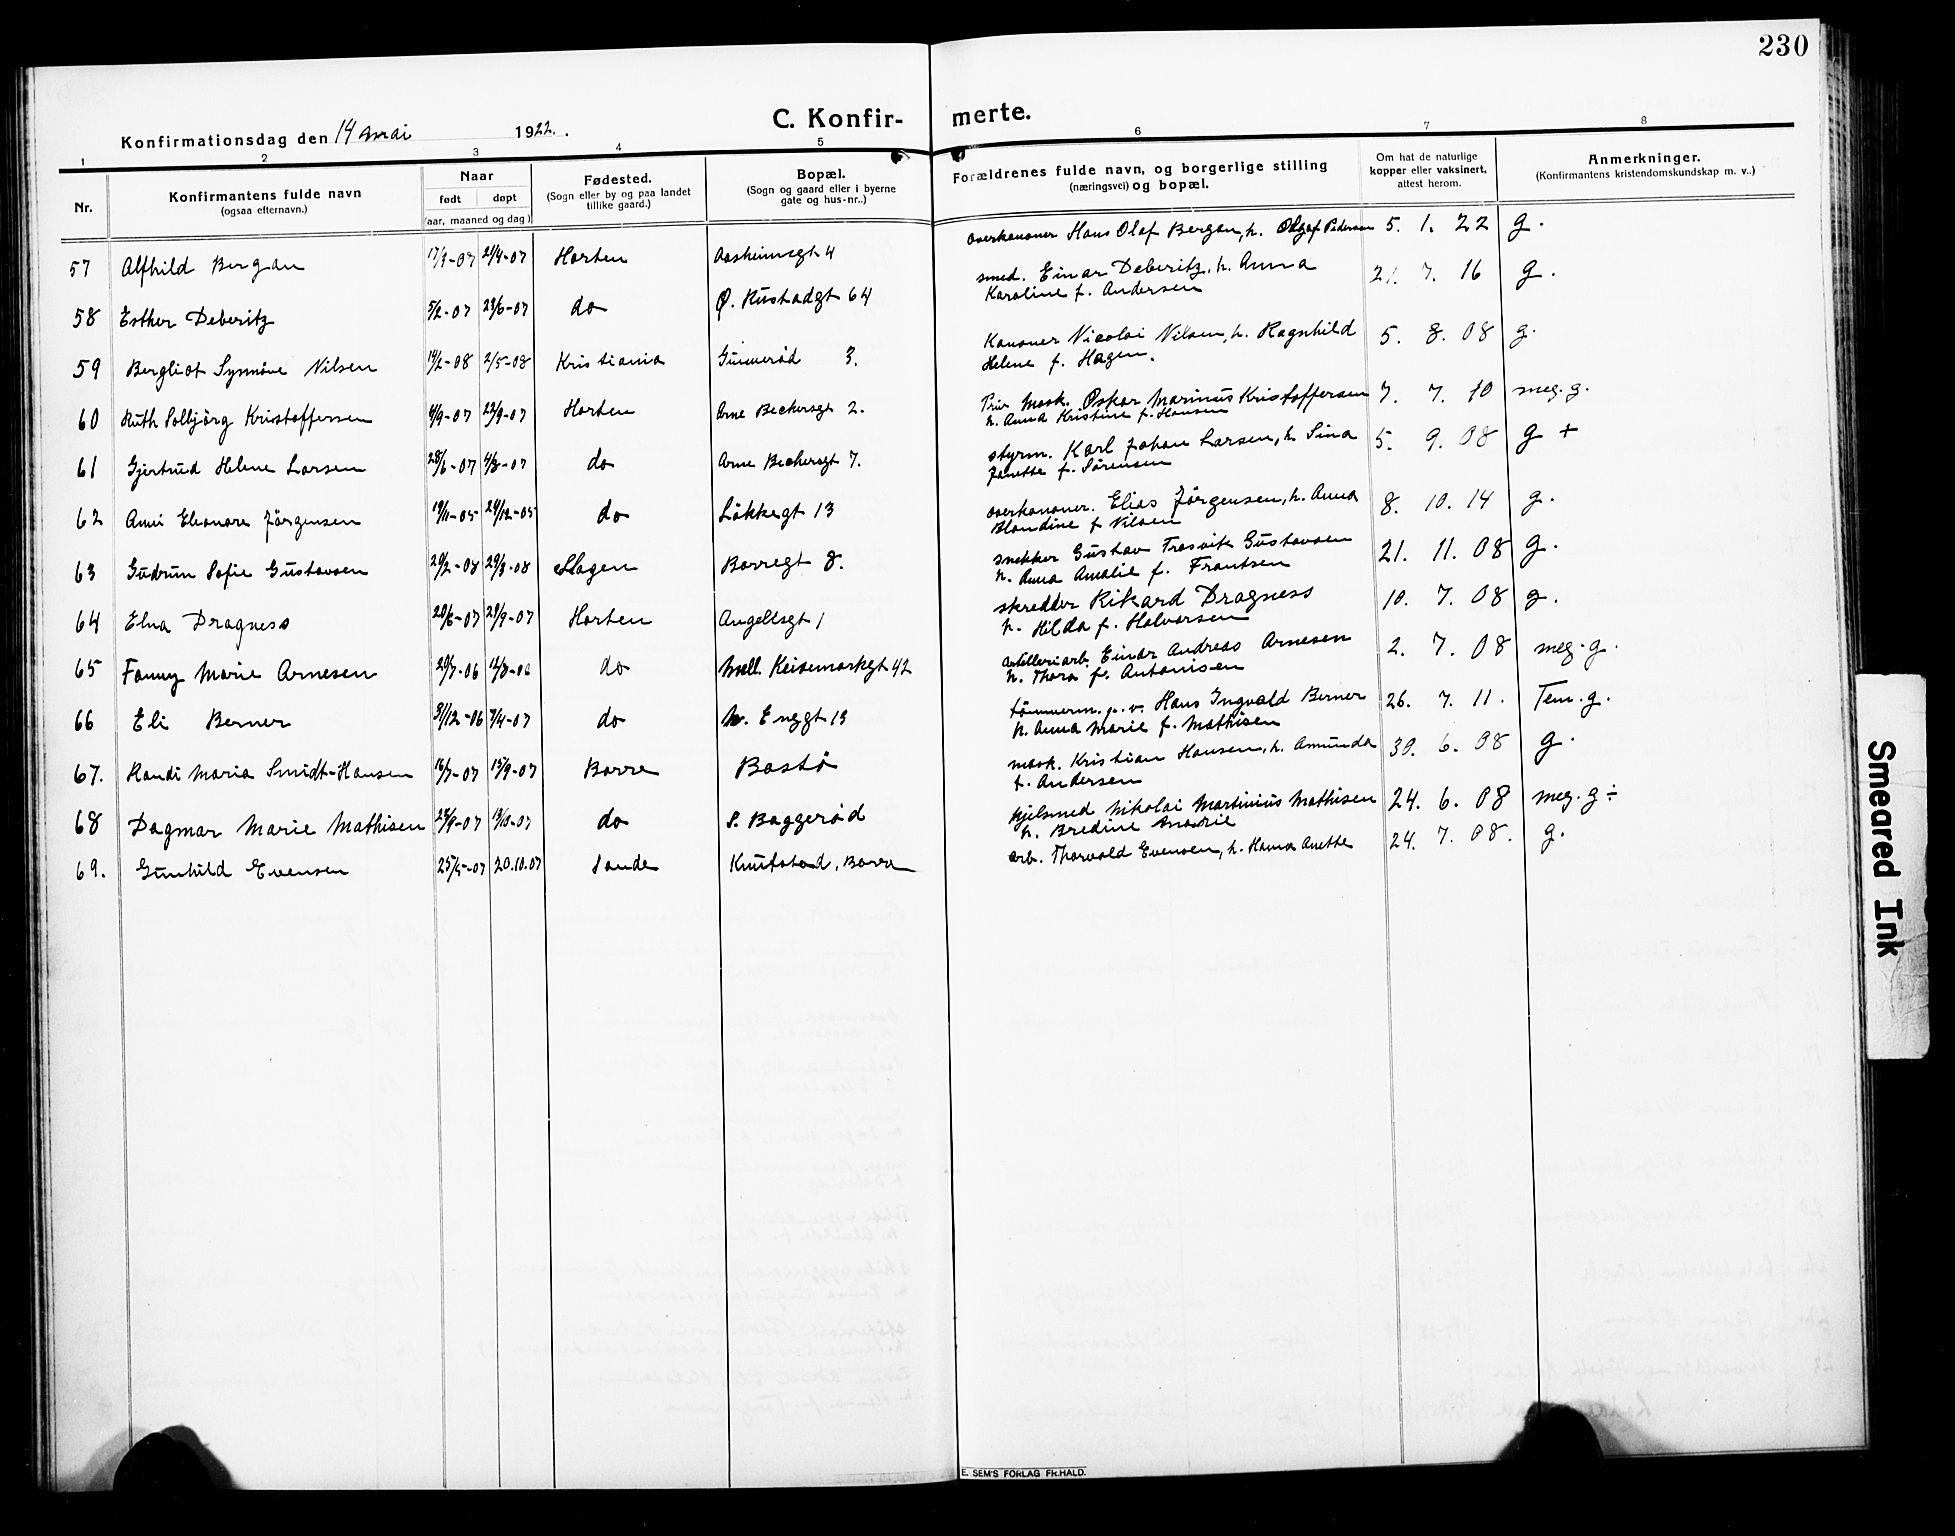 230
C. Konfir- merte.
Konfirmationsdag den 14 mai 1922.
1 2 3 4 5 6 7 8
Nr.
Konfirmantens fulde navn
(ogsaa efternavn.)
Naar
født døpt
(aar, maaned og dag)
Fødested.
(Sogn eller by og paa landet
tillike gaard.)
Bopæl.
(Sogn og gaard eller i byerne
gate og hus-nr..)
Forældrenes fulde navn, og borgerlige stilling
(næringsvei) og bopæl.
Om hat de naturlige
kopper eller vaksinert,
attest herom.
Anmerkninger.
(Konfirmantens kristendomskundskap m. v..)
57 Alfhild Bergan 17/9-07 Horten Aasheimsgt 4 overkanoner Hans Olaf Bergan, h. Olga f Pedersen 5. 1. 22 g.
58 Esther Deberitz 5/2-07 23/6-07 do Ø. Rustadgt 64 smed. Einar Deberitz, h. Anna
Karoline f. Andersen 21. 7. 16 g.
59 Bergliot Synnöve Nilsen 19/2-08 2/5-08 Kristiania Gunnerød 3. Kanoner Nicolai Nilsen, h. Ragnhild
Helene f. Hagen. 5. 8. 08 g.
60 Ruth Solbjörg Kristoffersen 4/9-07 22/9-07 Horten Arne Beckersgt 2. Mask. Oskar Marinus Kristoffersen
h. Anna Kristine f. Hansen 7. 7. 10 meg. g.
61 Gjertrud Helene Larsen 28/6-07 4/8-07 do Arne Beckersgt 7. styrm. Karl Johan Larsen, h. Sina
Janette f. Sörensen 5. 9. 08 g +
62 Anni Eleonore Jörgensen 19/11-05 24/12-05 do Lökkegt 13 overkanoner. Elias Jörgensen, h. Anna
Blondine f Nilsen 8. 10. 14 g.
63 Gudrun Sofie Gustavsen 20/2-08 29/3-08 Slagen Borregt 8. snekker Gustav Gustavsen
h. Anna Amalie f. Frantsen 21. 11. 08 g.
64 Elna Dragness 20/6-07 29/9-07 Horten Angellsgt 1 skredder Rikard Dragness
h. Hilda f. Halvorsen 10. 7. 08 g.
65 Fanny Marie Arnesen 20/7-06 12/8-06 do Mell. Keisemarkgt 42 artilleriarb. Einar Andreas Arnesen
h. Thora f. Antonisen 2. 7. 08 meg. g.
66 Eli Berner 31/12-06 7/4-07 do N. Enggt 13 tömmerm. p. v. Hans Ingvald Berner
h. Anna Marie f. Mathisen 26. 7. 11. Tem. g.
67. Randi Maria Smidt-Hansen 16/7-07 15/9-07 Borre Bastö mask. Kristian Hansen, h. Amunda
f. Andersen 30. 6. 08 g.
68 Dagmar Marie Mathisen 13/10-07 do S. Baggerød hjelsmed Nikolai Martinius Mathisen
h. Bredine Marie 24. 6. 08 meg. g ÷
69. Gunhild Evensen 20.10.07 Sande Knutstad, Borre arb. Thorvald Evensen, h. Hanna Anette 24. 7. 08. g.
E. SEM'S FORLAG FR.HALD.
Smeared Ink